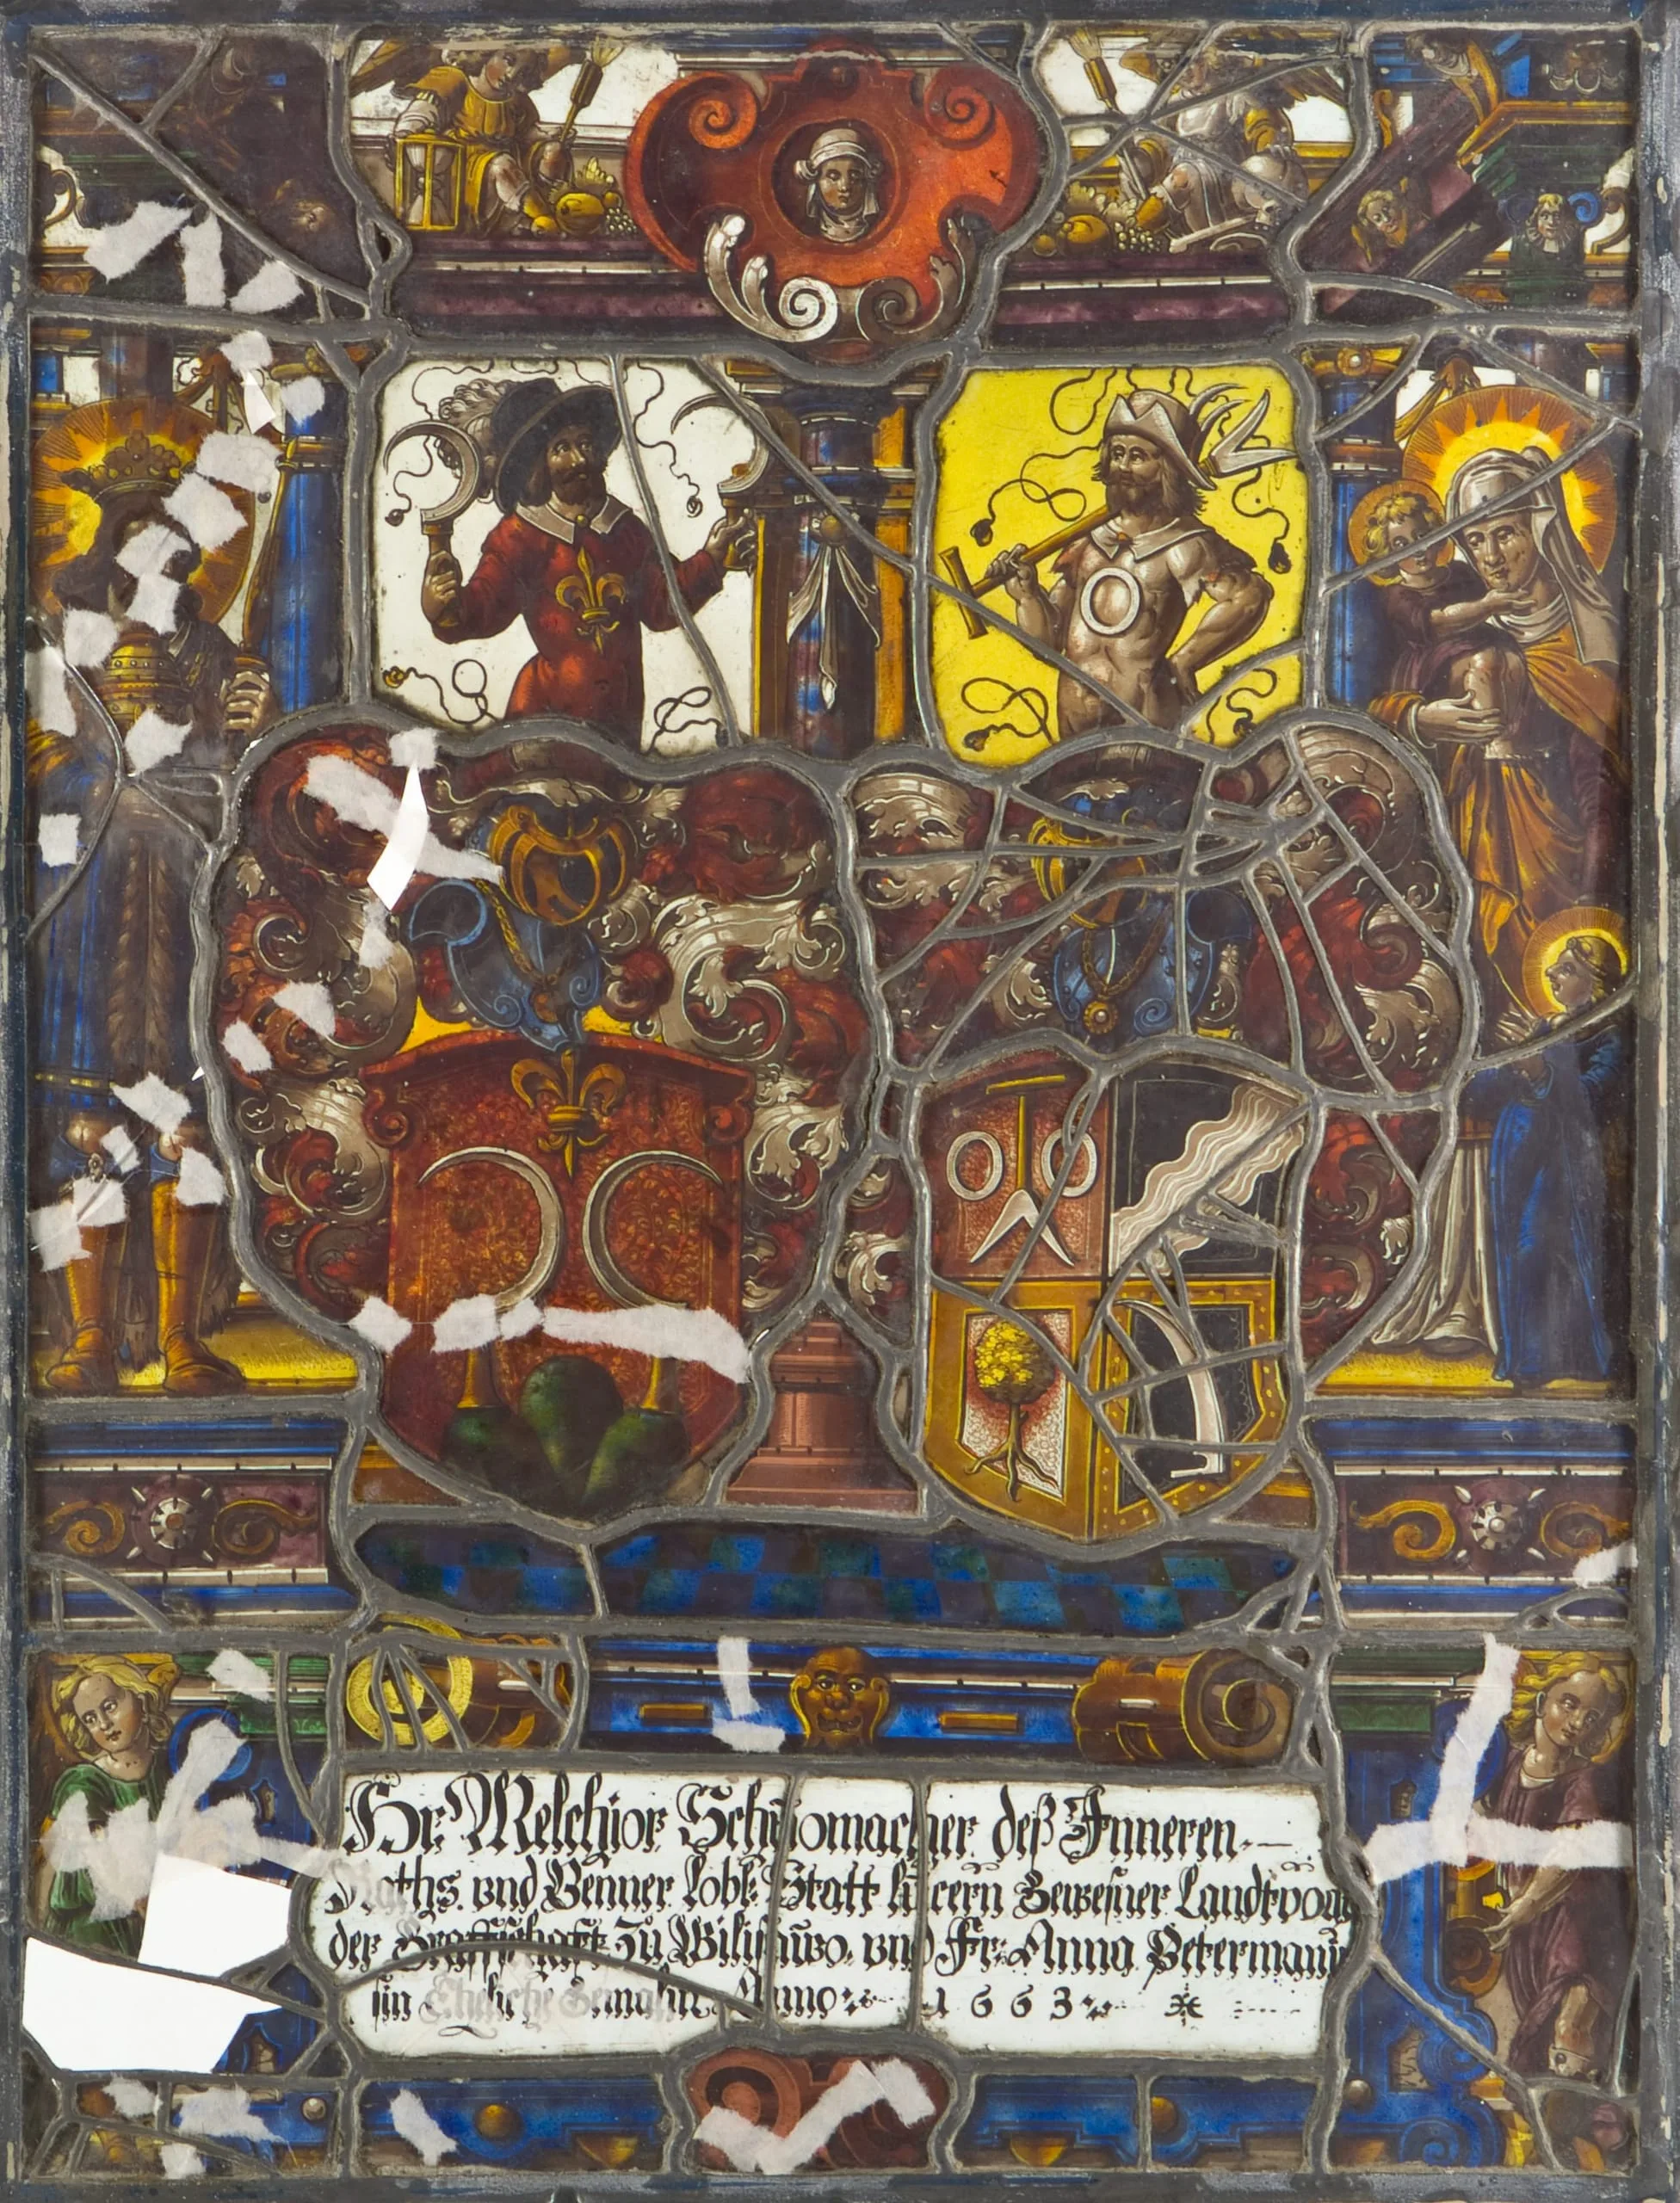 Hr: Melchior Schuomacher deß Inneren.
Raths. vnd Venner Lobl: Statt Lucern Gewesner Landtvogt
der Graffschafft Zu Wilisauw. vnd Fr: Anna Petermanin
sin Eheliche Gemahlin Anno 1663